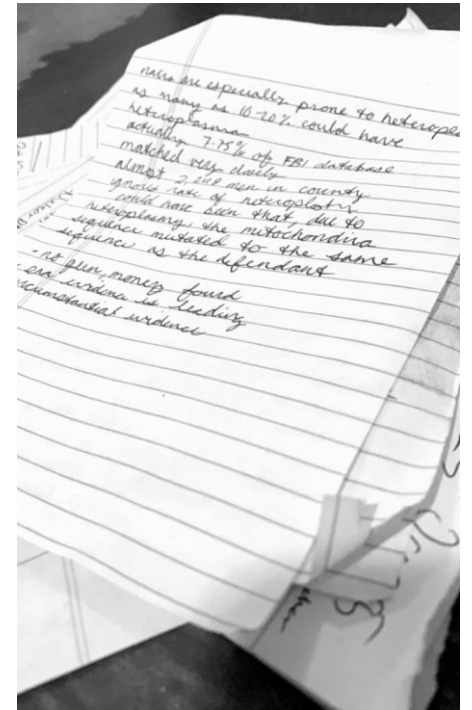 hairs are especially prone to heteropla
as many as 10-20% could have
heteroplasma
actually 7.75% of FBI database
matched very closely
almost men in county
ignores rate of
could have been that, due to
heteroplasmy the mitochondria
sequence mutated to the same
sequence as the defendant
- no gun, money found
evidence is leading
circumstantial evidence